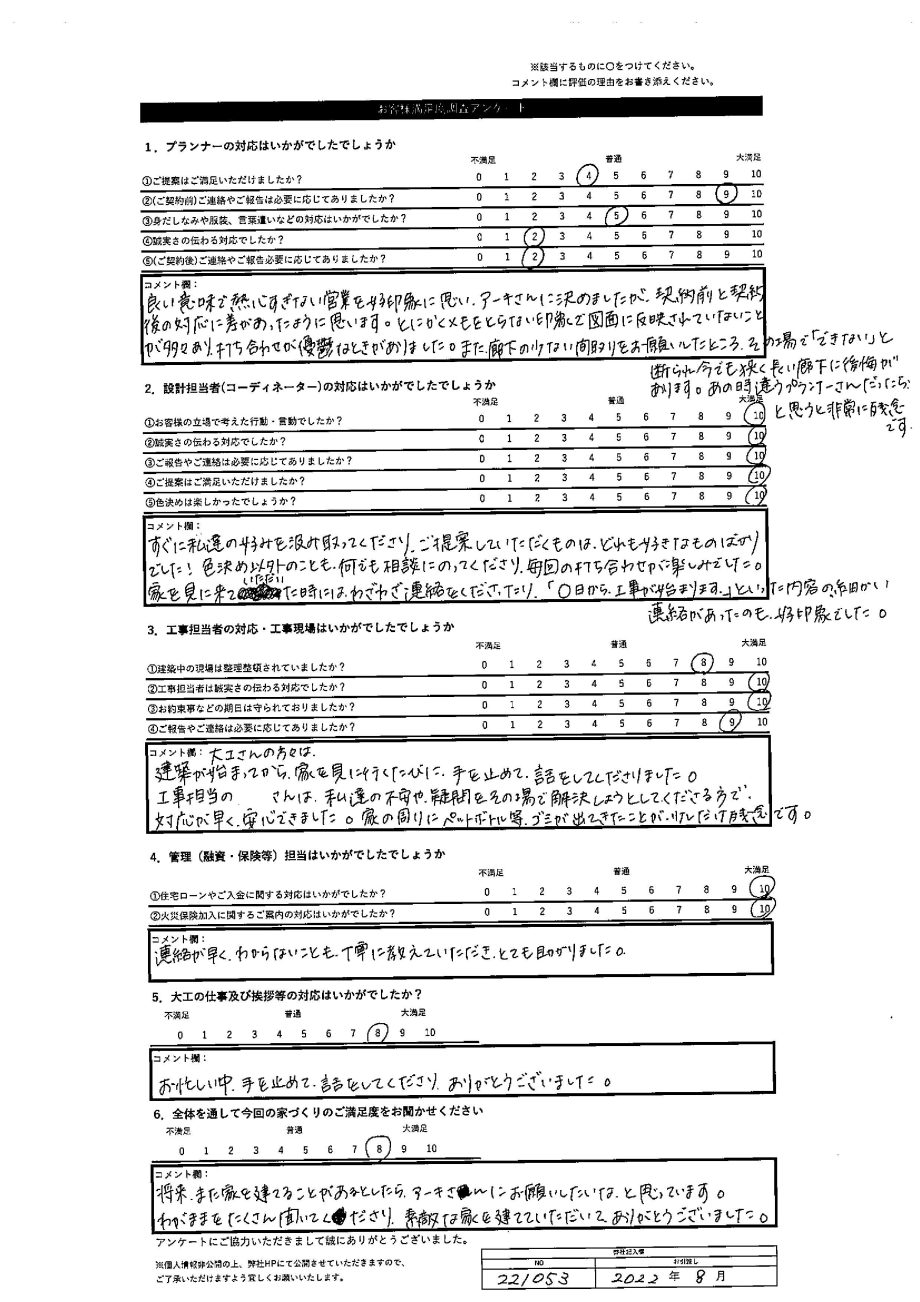 ※該当するものに〇をつけてください。
コメント欄に評価の理由をお書き添えください。
お客様満足度調査アンケート
1．プランナーの対応はいかがでしたでしょうか
不満足 普通 大満足
①ご提案はご満足いただけましたか？ 0 1 2 3 4 5 6 7 8 9 10
②(ご契約前)ご連絡やご報告は必要に応じてありましたか？ 0 1 2 3 4 5 6 7 8 9 10
③身だしなみや服装、言葉遣いなどの対応はいかがでしたか？ 0 1 2 3 4 5 6 7 8 9 10
④誠実さの伝わる対応でしたか？ 0 1 2 3 4 5 6 7 8 9 10
⑤(ご契約後)ご連絡やご報告必要に応じてありましたか？ 0 1 2 3 4 5 6 7 8 9 10
コメント欄：
良い意味で熱心すぎない営業を好印象に思い、アーキさんに決めましたが、契約前と契約
後の対応に差があったように思います。とにかくメモをとらない印象で図面に反映されていないこと
が多々あり、打ち合わせが憂鬱なときがありました。また、廊下の少ない間取りをお願いしたところ、その場で「できない」と
断られ今でも狭く長い廊下に後悔が
あります。あの時違うプランナーさんだったら、
と思うと非常に残念
です。
2．設計担当者(コーディネーター)の対応はいかがでしたでしょうか
不満足 普通 大満足
①お客様の立場で考えた行動・言動でしたか？ 0 1 2 3 4 5 6 7 8 9 10
②誠実さの伝わる対応でしたか？ 0 1 2 3 4 5 6 7 8 9 10
③ご報告やご連絡は必要に応じてありましたか？ 0 1 2 3 4 5 6 7 8 9 10
④ご提案はご満足いただけましたか？ 0 1 2 3 4 5 6 7 8 9 10
⑤色決めは楽しかったでしょうか？ 0 1 2 3 4 5 6 7 8 9 10
コメント欄：
すぐに私達の好みを汲み取ってくださり、ご提案していただくものは、どれも好きなものばかり
でした！色決め以外のことも、何でも相談にのってくださり、毎回の打ち合わせが楽しみでした。
家を見に来ていただいた時には、わざわざ連絡をくださったり、「〇日から、工事が始まります。」といった内容の細かい
連絡があったのも、好印象でした。
3．工事担当者の対応・工事現場はいかがでしたでしょうか
不満足 普通 大満足
①建築中の現場は整理整頓されていましたか？ 0 1 2 3 4 5 6 7 8 9 10
②工事担当者は誠実さの伝わる対応でしたか？ 0 1 2 3 4 5 6 7 8 9 10
③お約束事などの期日は守られておりましたか？ 0 1 2 3 4 5 6 7 8 9 10
④ご報告やご連絡は必要に応じてありましたか？ 0 1 2 3 4 5 6 7 8 9 10
コメント欄：大工さんの方々は、
建築が始まってから、家を見に行くたびに、手を止めて、話をしてくださりました。
工事担当の さんは、私達の不安や、疑問をその場で解決しようとしてくださる方で、
対応が早く、安心できました。家の周りにペットボトル等、ゴミが出てきたことが、少しだけ残念です。
4．管理（融資・保険等）担当はいかがでしたでしょうか
不満足 普通 大満足
①住宅ローンやご入金に関する対応はいかがでしたか？ 0 1 2 3 4 5 6 7 8 9 10
②火災保険加入に関するご案内の対応はいかがでしたか？ 0 1 2 3 4 5 6 7 8 9 10
コメント欄：
連絡が早く、わからないことも、丁寧に教えていただき、とても助かりました。
5．大工の仕事及び挨拶等の対応はいかがでしたか？
不満足 普通 大満足
0 1 2 3 4 5 6 7 8 9 10
コメント欄：
お忙しい中、手を止めて、話をしてくださり、ありがとうございました。
6．全体を通して今回の家づくりのご満足度をお聞かせください
不満足 普通 大満足
0 1 2 3 4 5 6 7 8 9 10
コメント欄：
将来、また家を建てることがあるとしたら、アーキさんにお願いしたいな、と思っています。
わがままをたくさん聞いてくださり、素敵な家を建てていただいて、ありがとうございました。
アンケートにご協力いただきまして誠にありがとうございました。
※個人情報非公開の上、弊社HPにて公開させていただきますので、
ご了承いただけますよう宜しくお願いいたします。
弊社記入欄
NO お引渡し
221053 2022年 8月